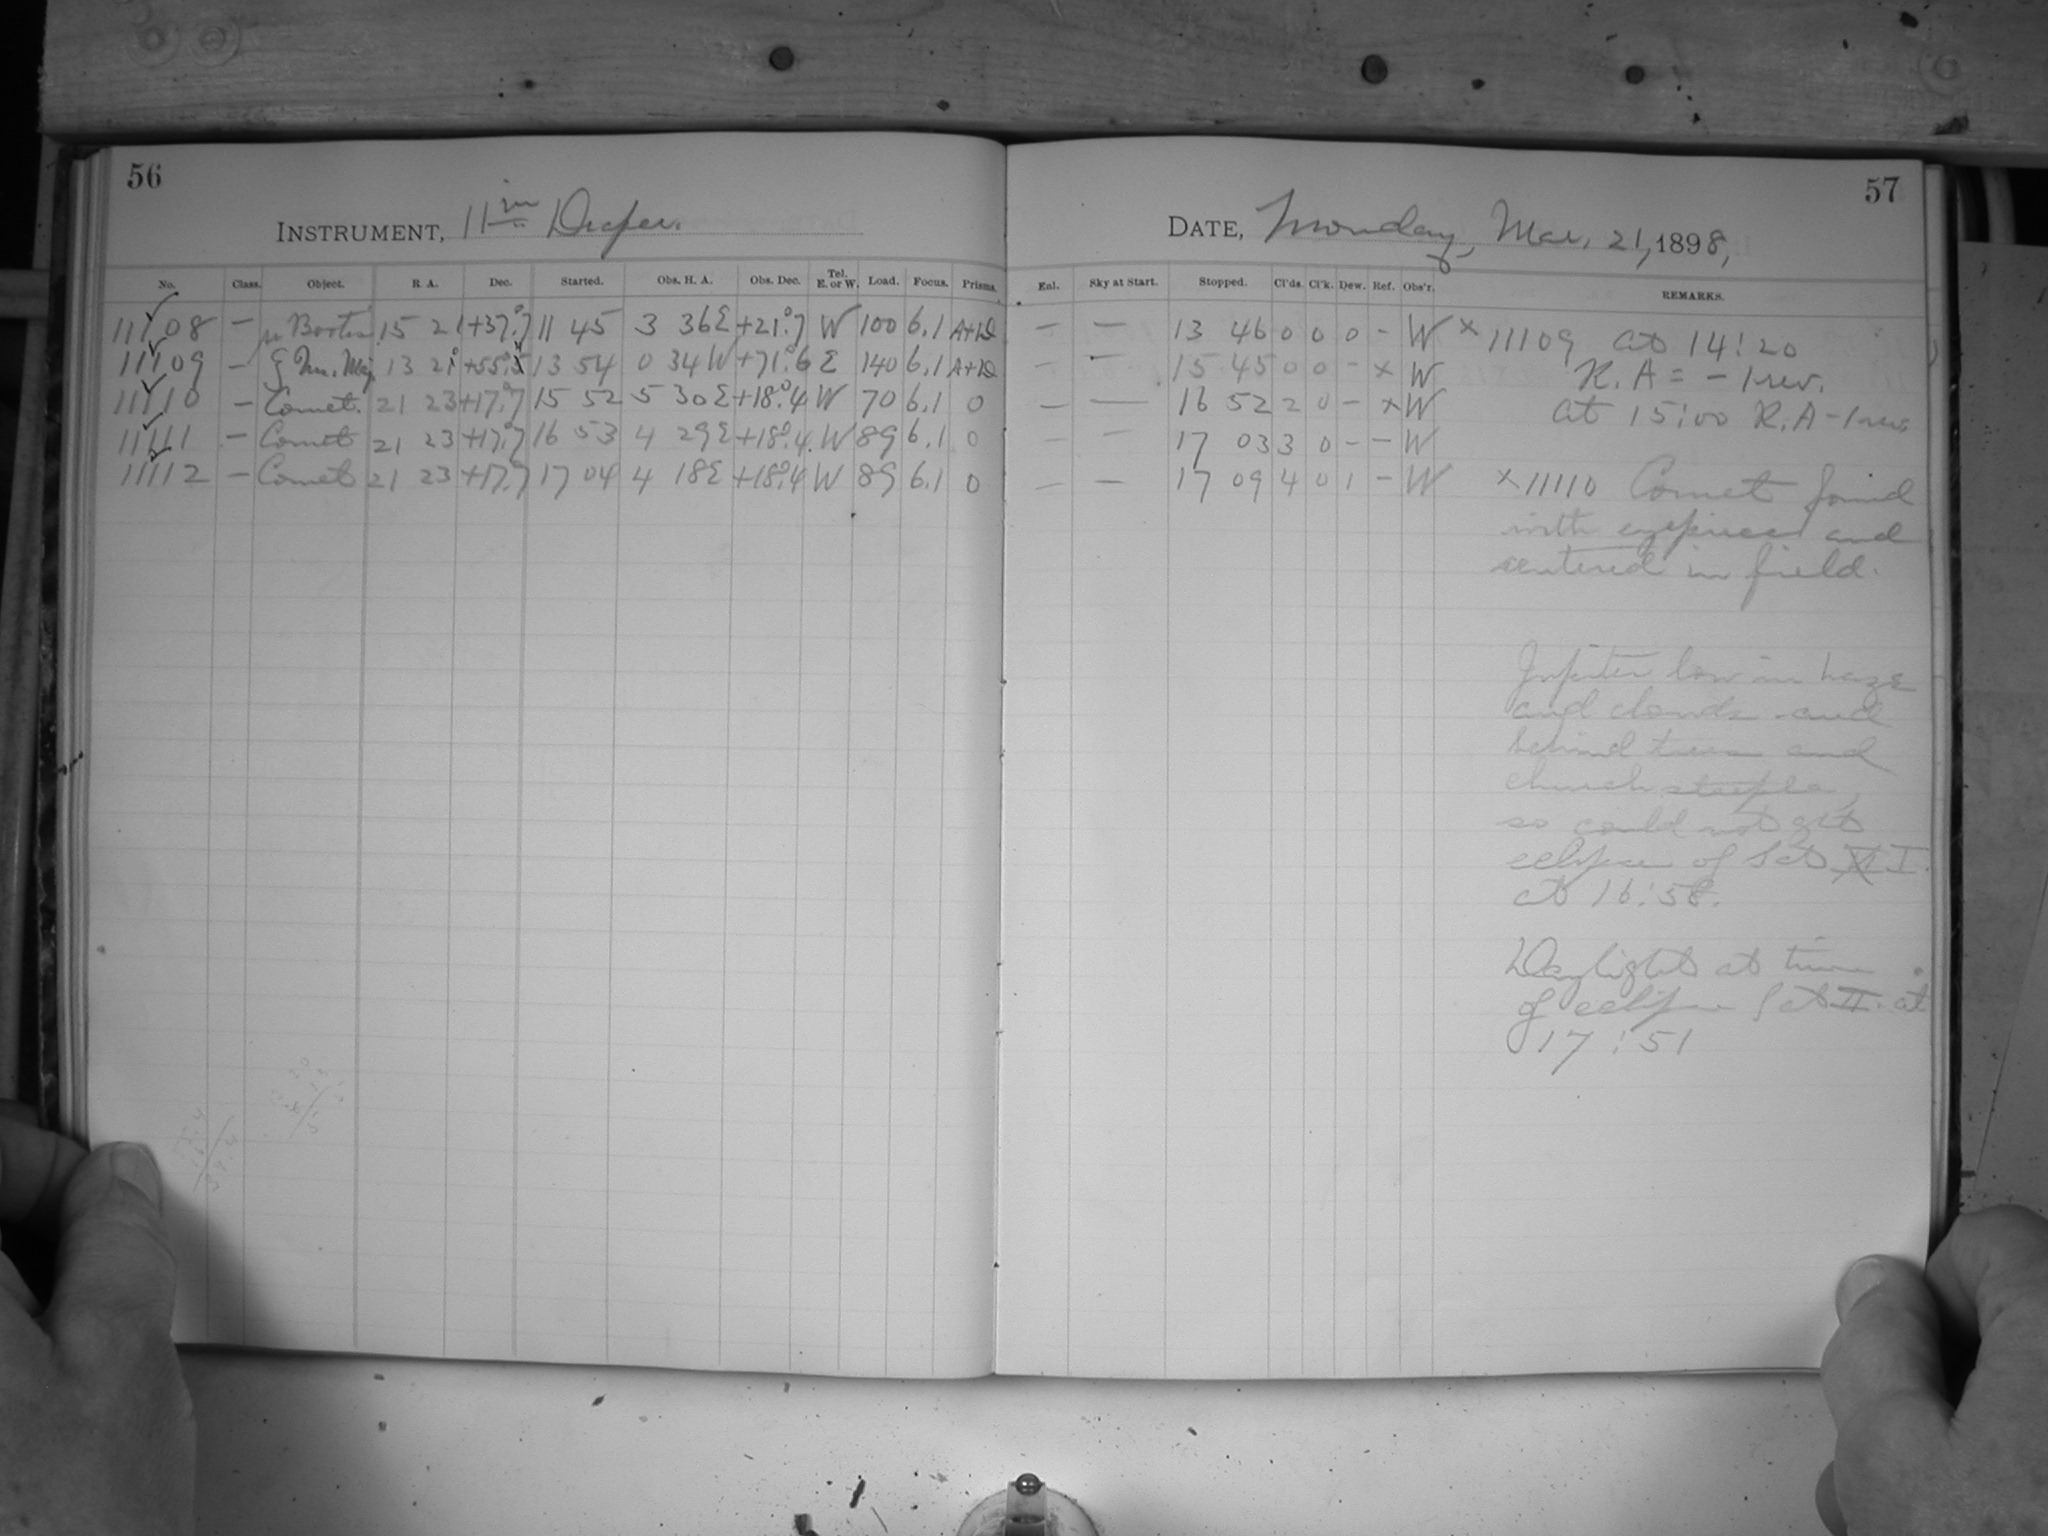 56
INSTRUMENT, 11 in Draper.
No. Class. Object. R. A. Dec. Started. Obs. H. A. Obs. Dec. Tel. E. or W. Load. Focus. Prisms.
11108 — μ Bootis 15 21 +37°.7 11 45 3 36E +21°.7 W 100 6.1 A+D
11109 — ζ Urs. Maj. 13 21 +55°.5 13 54 0 34W +71°.6 E 140 6.1 A+D
11110 — Comet. 21 23 +17°.7 15 52 5 30E +18°.4 W 70 6.1 0
11111 — Comet 21 23 +17°.7 16 53 4 29E +18°.4 W 89 6.1 0
11112 — Comet 21 23 +17°.7 17 04 4 18E +18°.4 W 89 6.1 0
57
DATE, Monday, Mar. 21, 1898,
Enl. Sky at Start. Stopped. Cl'ds. Cl'k. Dew. Ref. Obs'r. REMARKS.
— — 13 46 0 0 0 - W x 11109 at 14:20
— — 15 45 0 0 - x W R.A = - 1 rev.
— — 16 52 2 0 - x W at 15:00 R.A - 1 rev.
— — 17 03 3 0 - - W
— — 17 09 4 0 1 - W x 11110 Comet found
with eyepiece and
centered in field.
Jupiter low in haze
and clouds and
behind trees and
church steeple,
so could not get
eclipse of Sat I
at 16:58.
Daylight at time
of eclipse Sat II at
17:51